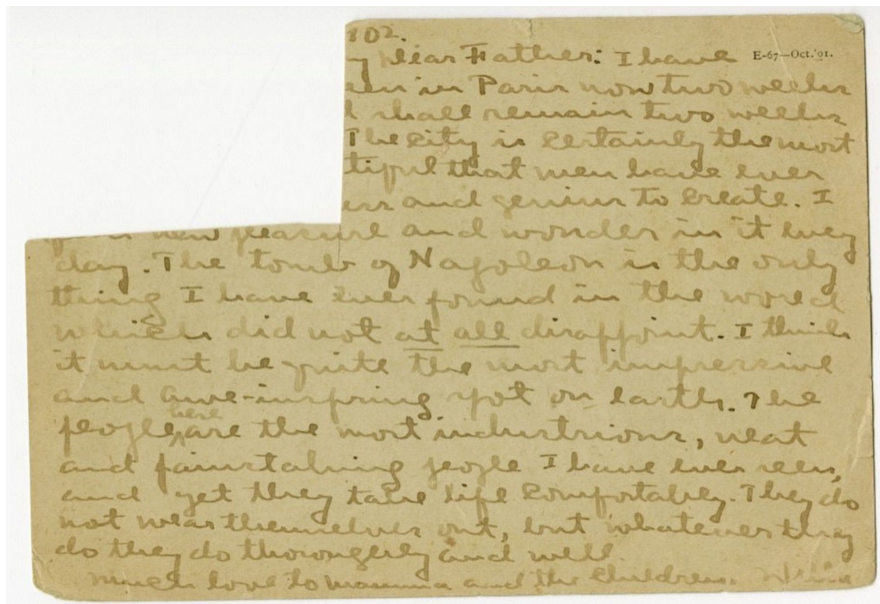 302.
y dear Father: I have
E-67—Oct. '01.
een in Paris now two weeks
d shall remain two weeks
The city is certainly the most
tiful that men have ever
and genius to create. I
new pleasure and wonder in it every
day. The tomb of Napoleon is the only
thing I have ever found in the world
which did not at all disappoint. I think
it must be quite the most impressive
and awe-inspiring spot on earth. The
people here are the most industrious, neat
and painstaking people I have ever seen,
and yet they take life comfortably. They do
not wear themselves out, but whatever they
do they do thoroughly and well.
Much love to mamma and the children. Willie